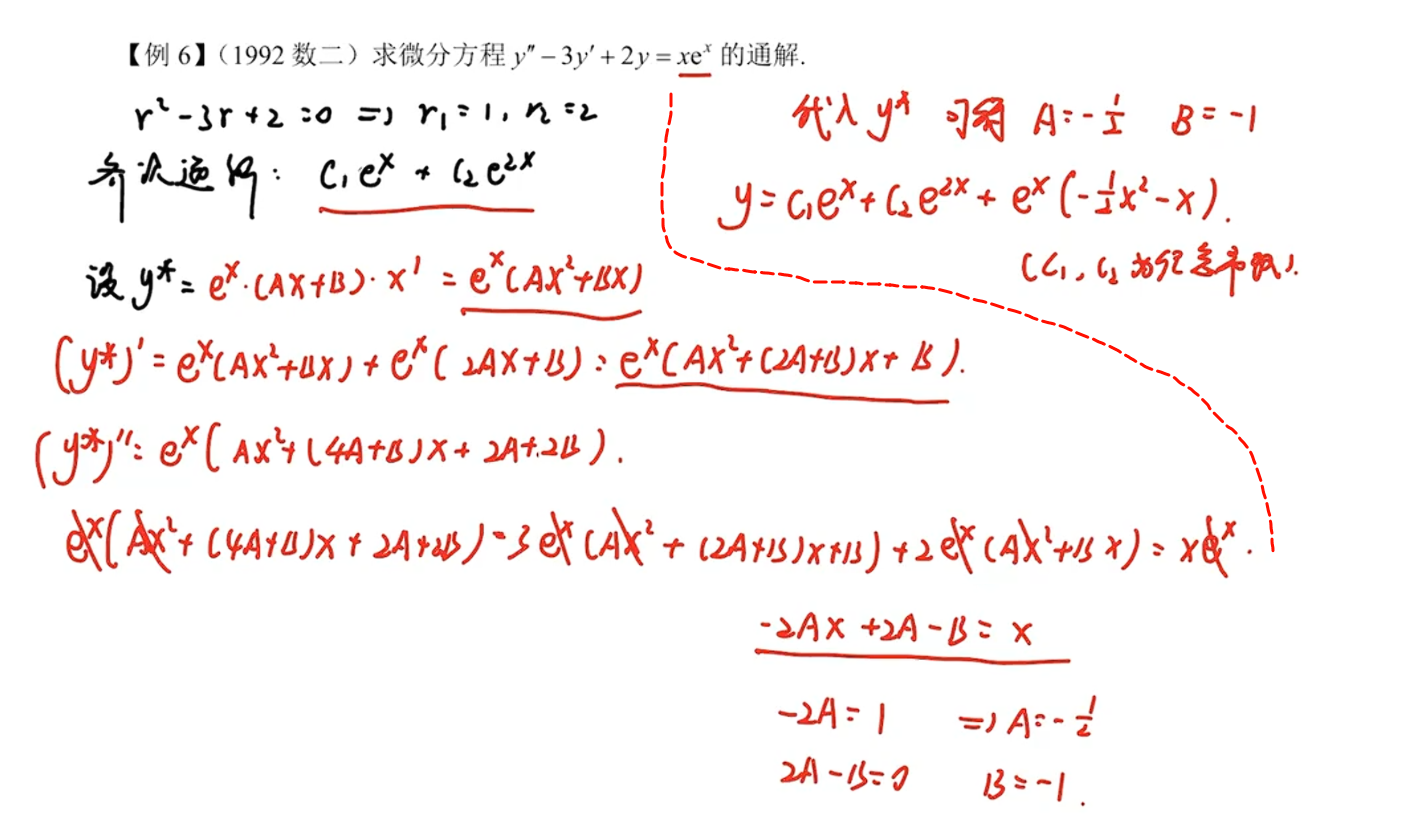 【例 6】（1992 数二）求微分方程 y″ − 3y′ + 2y = xeˣ 的通解.
r² - 3r + 2 = 0 => r₁ = 1, r₂ = 2
齐次通解: C₁eˣ + C₂e²ˣ
设 y* = eˣ·(Ax+B)·x¹ = eˣ(Ax²+Bx)
(y*)′ = eˣ(Ax²+Bx) + eˣ(2Ax+B) = eˣ(Ax²+(2A+B)x+B).
(y*)″ = eˣ(Ax²+(4A+B)x+2A+2B).
eˣ(Ax²+(4A+B)x+2A+2B) - 3eˣ(Ax²+(2A+B)x+B) + 2eˣ(Ax²+Bx) = xeˣ.
-2Ax + 2A - B = x
-2A = 1 => A = -1/2
2A - B = 0 B = -1.
代入 y* 可得 A = -1/2 B = -1
y = C₁eˣ + C₂e²ˣ + eˣ(-1/2x² - x).
(C₁, C₂ 为任意常数).